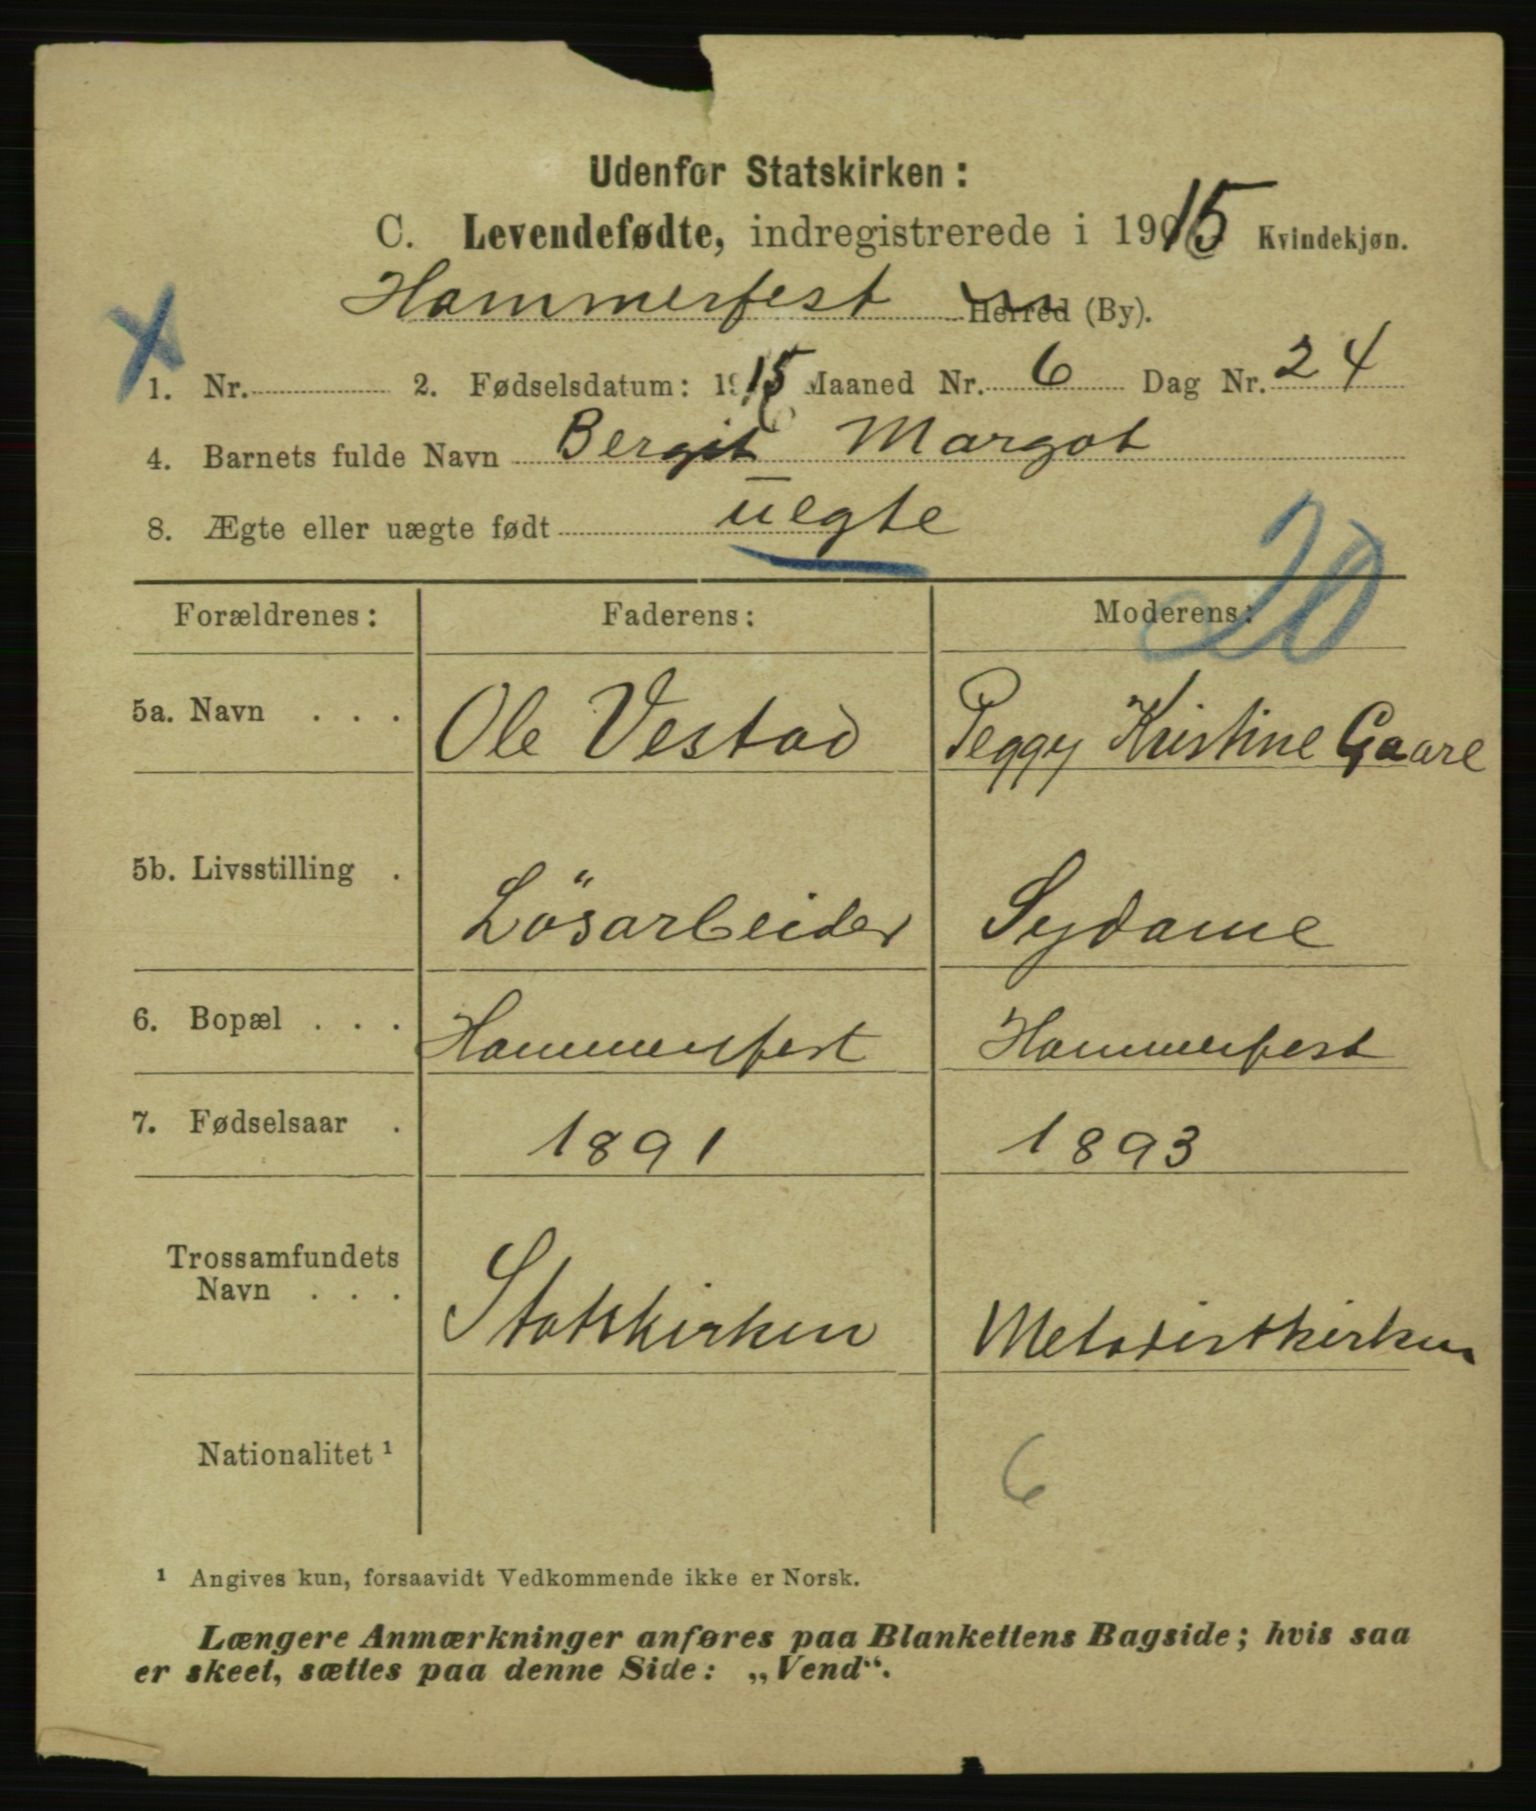 Udenfor Statskirken:
C. Levendefødte, indregistrerede i 1915 Kvindekjøn.
Hammerfest Herred (By).
1. Nr. 2. Fødselsdatum: 1915 Maaned Nr. 6 Dag Nr. 24
4. Barnets fulde Navn Bergit Margot
8. Ægte eller uægte født uegte
20
Forældrenes: Faderens: Moderens:
5a. Navn . . . Ole Vestad Peggy Kristine Gaare
5b. Livsstilling . Lösarbeider Sydame
6. Bopæl . . . Hammerfest Hammerfest
7. Fødselsaar . 1891 1893
Trossamfundets
Navn . . . Statskirken Metodistkirken
Nationalitet ¹ 6
¹ Angives kun, forsaavidt Vedkommende ikke er Norsk.
Længere Anmærkninger anføres paa Blankettens Bagside; hvis saa
er skeet, sættes paa denne Side: „Vend“.